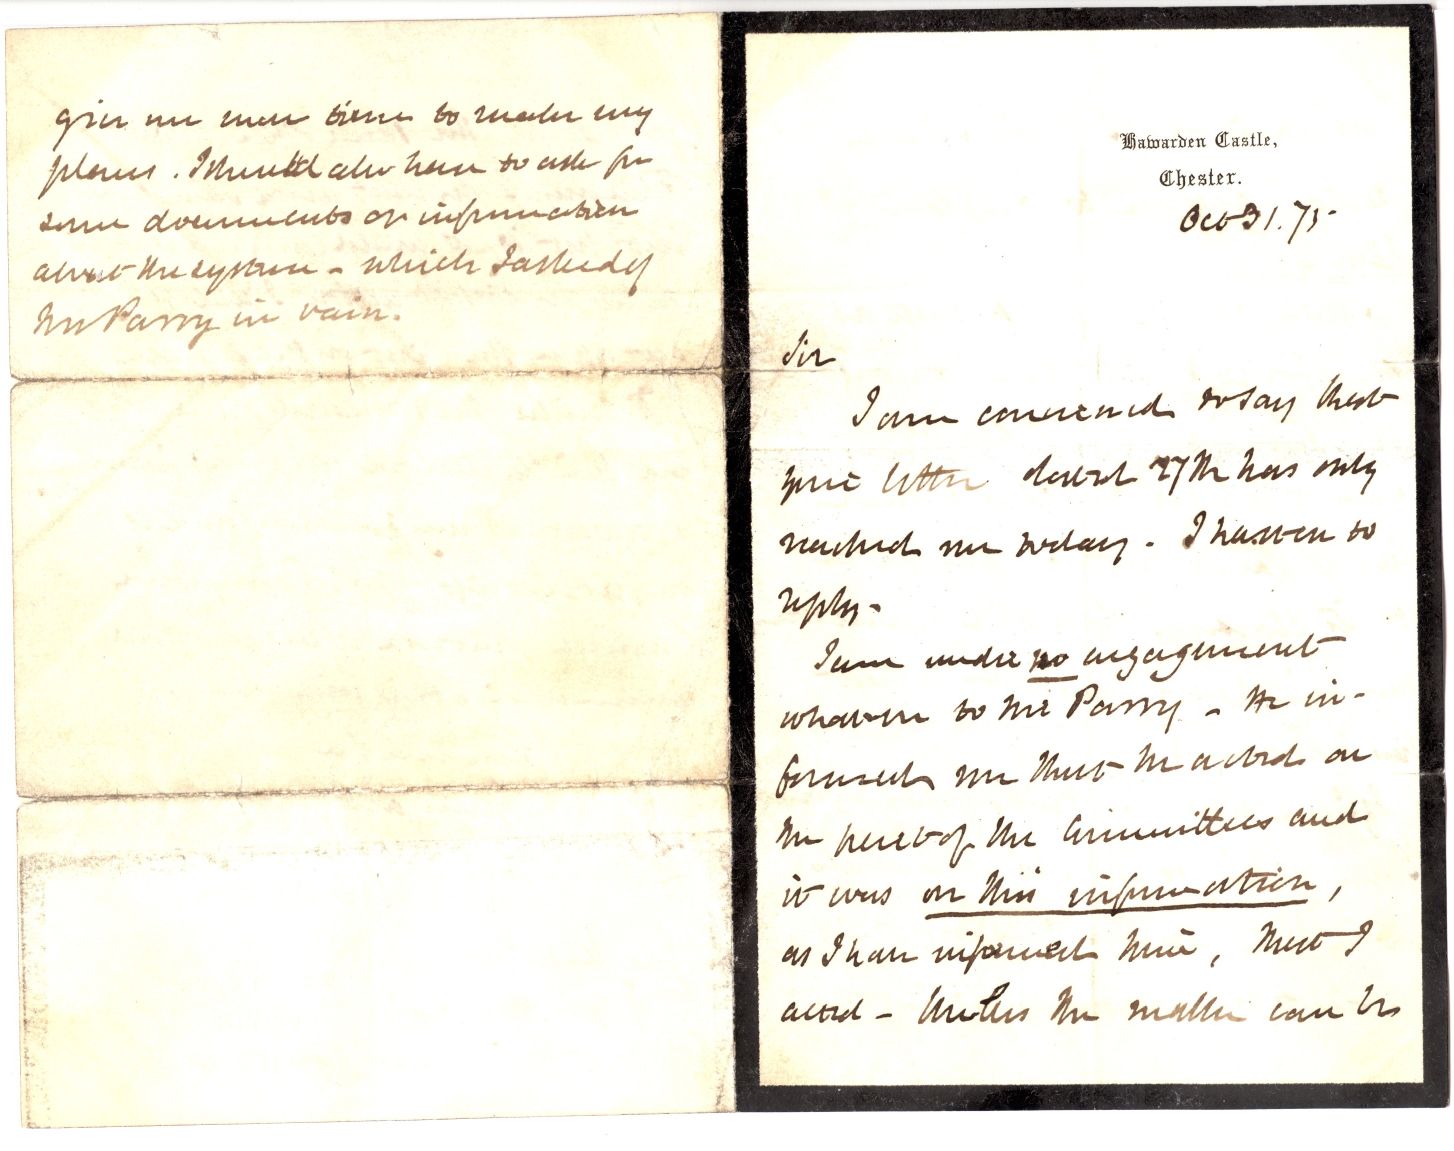 Hawarden Castle,
Chester.
Oct 31. 75
Sir
I am concerned to say that
your letter dated 27th has only
reached me today. I hasten to
reply.
I am under no engagement
whatever to Mr Parry - He in-
formed me that he acted on
the part of the Committees and
it was on this information,
as I have informed him, that I
acted - Unless the matter can be
give me more time to make my
plans. I should also have to ask for
some documents or information
about the system - which I asked of
Mr Parry in vain.